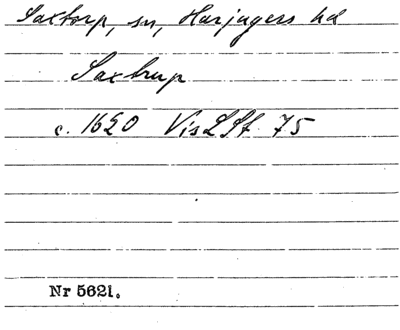 Saxtorp, sn, Harjagers hd
Saxtrup
c. 1620 Vis LSt. 75
Nr 5621.